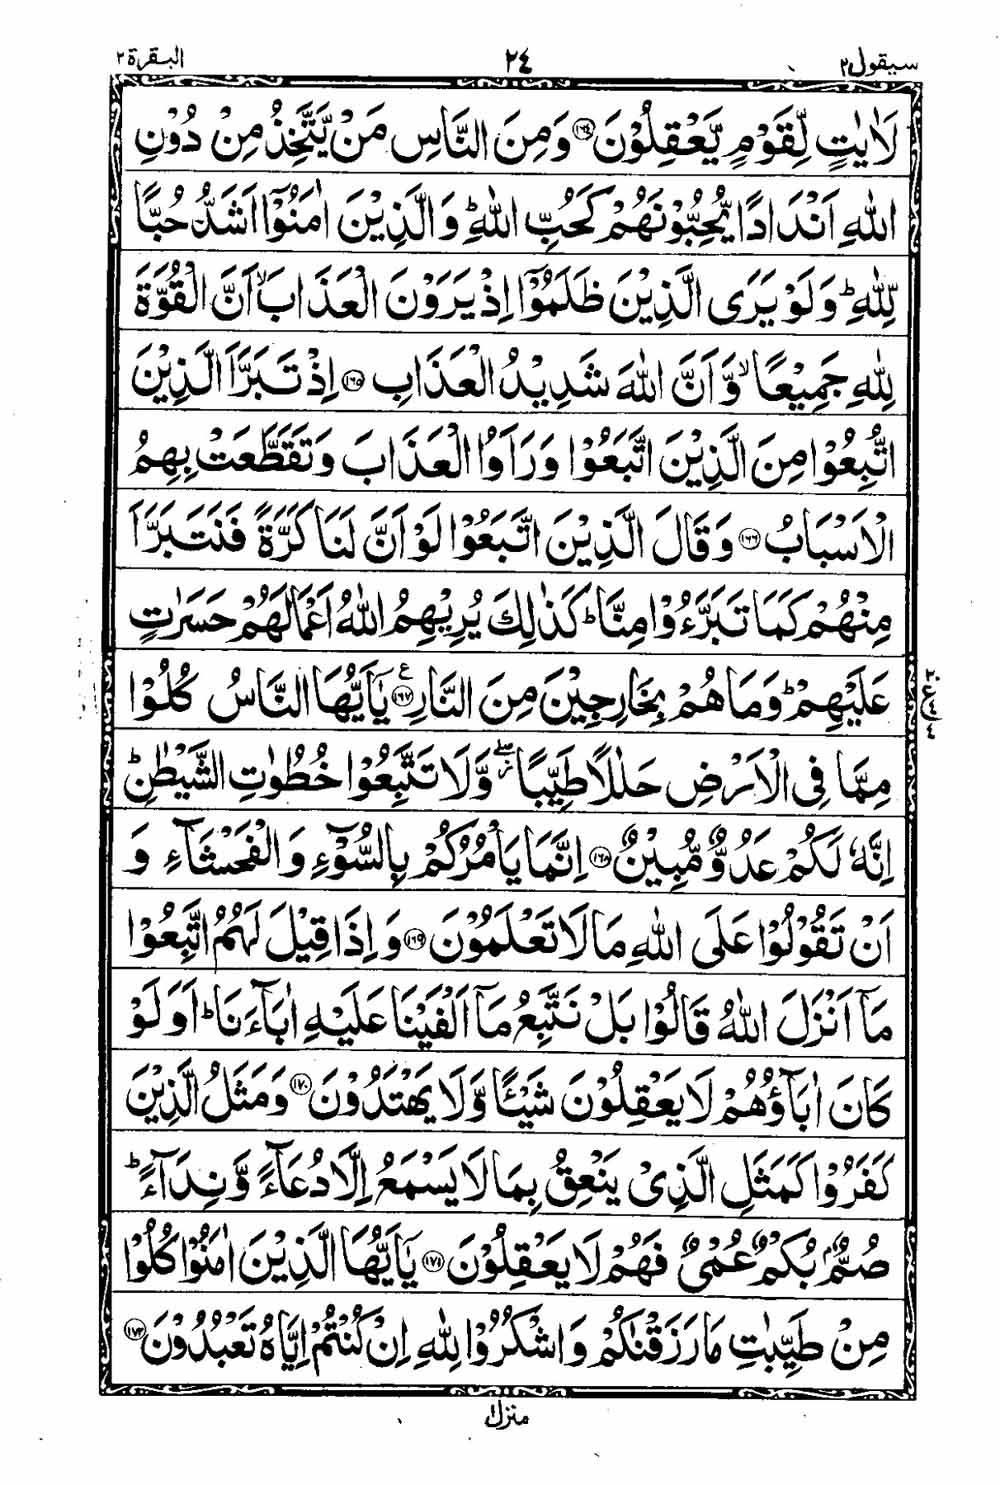 سيقول ٢ ٢٤ البقرة ٢
لَاٰيٰتٍ لِّقَوْمٍ يَّعْقِلُوْنَ ﴿١٦٤﴾ وَمِنَ النَّاسِ مَنْ يَّتَّخِذُ مِنْ دُوْنِ
اللّٰهِ اَنْدَادًا يُّحِبُّوْنَهُمْ كَحُبِّ اللّٰهِ ؕ وَالَّذِيْنَ اٰمَنُوْۤا اَشَدُّ حُبًّا
لِّلّٰهِ ؕ وَلَوْ يَرَى الَّذِيْنَ ظَلَمُوْۤا اِذْ يَرَوْنَ الْعَذَابَ ۙ اَنَّ الْقُوَّةَ
لِلّٰهِ جَمِيْعًا ۙ وَّاَنَّ اللّٰهَ شَدِيْدُ الْعَذَابِ ﴿١٦٥﴾ اِذْ تَبَرَّاَ الَّذِيْنَ
اتُّبِعُوْا مِنَ الَّذِيْنَ اتَّبَعُوْا وَرَاَوُا الْعَذَابَ وَتَقَطَّعَتْ بِهِمُ
الْاَسْبَابُ ﴿١٦٦﴾ وَقَالَ الَّذِيْنَ اتَّبَعُوْا لَوْ اَنَّ لَنَا كَرَّةً فَنَتَبَرَّاَ
مِنْهُمْ كَمَا تَبَرَّءُوْا مِنَّا ؕ كَذٰلِكَ يُرِيْهِمُ اللّٰهُ اَعْمَالَهُمْ حَسَرٰتٍ
عَلَيْهِمْ ؕ وَمَا هُمْ بِخَارِجِيْنَ مِنَ النَّارِ ﴿١٦٧﴾ ع يٰۤاَيُّهَا النَّاسُ كُلُوْا
مِمَّا فِى الْاَرْضِ حَلٰلًا طَيِّبًا ۖ وَّلَا تَتَّبِعُوْا خُطُوٰتِ الشَّيْطٰنِ ؕ
اِنَّهٗ لَكُمْ عَدُوٌّ مُّبِيْنٌ ﴿١٦٨﴾ اِنَّمَا يَاْمُرُكُمْ بِالسُّوْٓءِ وَالْفَحْشَآءِ وَ
اَنْ تَقُوْلُوْا عَلَى اللّٰهِ مَا لَا تَعْلَمُوْنَ ﴿١٦٩﴾ وَاِذَا قِيْلَ لَهُمُ اتَّبِعُوْا
مَاۤ اَنْزَلَ اللّٰهُ قَالُوْا بَلْ نَتَّبِعُ مَاۤ اَلْفَيْنَا عَلَيْهِ اٰبَآءَنَا ؕ اَوَلَوْ
كَانَ اٰبَآؤُهُمْ لَا يَعْقِلُوْنَ شَيْـًٔا وَّلَا يَهْتَدُوْنَ ﴿١٧٠﴾ وَمَثَلُ الَّذِيْنَ
كَفَرُوْا كَمَثَلِ الَّذِىْ يَنْعِقُ بِمَا لَا يَسْمَعُ اِلَّا دُعَآءً وَّنِدَآءً ؕ
صُمٌّۢ بُكْمٌ عُمْىٌ فَهُمْ لَا يَعْقِلُوْنَ ﴿١٧١﴾ يٰۤاَيُّهَا الَّذِيْنَ اٰمَنُوْا كُلُوْا
مِنْ طَيِّبٰتِ مَا رَزَقْنٰكُمْ وَاشْكُرُوْا لِلّٰهِ اِنْ كُنْتُمْ اِيَّاهُ تَعْبُدُوْنَ ﴿١٧٢﴾
منزل ١